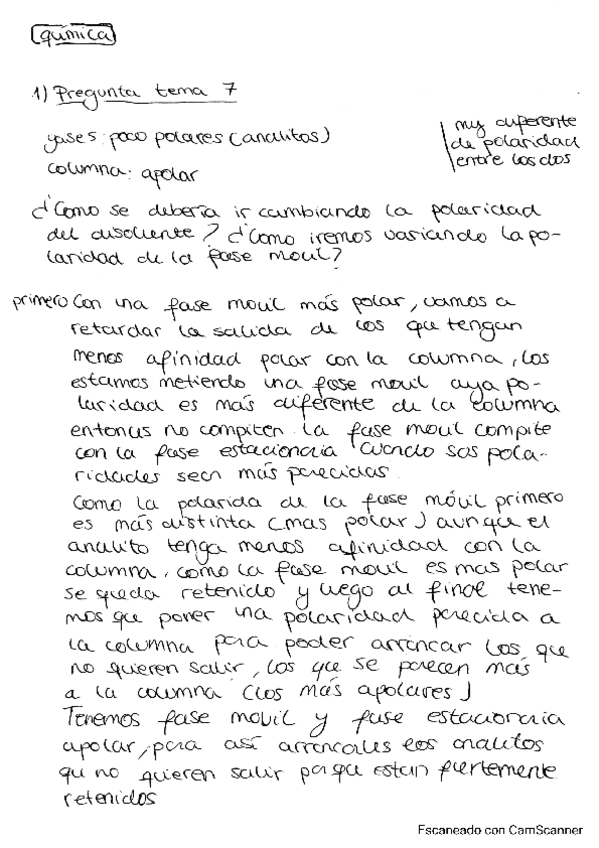 química
1) Pregunta tema 7
yases: poco polares (analitos)
columna: apolar
my diferente
de polaridad
entre los dos
¿Como se debería ir cambiando la polaridad
del disolvente? ¿Como iremos variando la po-
laridad de la fase movil?
primero Con una fase movil más polar, vamos a
retardar la salida de los que tengan
menos afinidad polar con la columna, los
estamos metiendo una fase movil cuya po-
laridad es más diferente de la columna
entonces no compiten. La fase movil compite
con la fase estacionaria cuando sas pola-
ridades sean más parecidas.
Como la polarida de la fase móvil primero
es más distinta (mas polar) aunque el
analito tenga menos afinidad con la
columna, como la fase movil es mas polar
se queda retenido y luego al final tene-
mos que poner una polaridad parecida a
la columna para poder arrancar los que
no quieren salir, los que se parecen más
a la columna (los más apolares)
Tenemos fase movil y fase estacionaria
apolar, para así arrancarles los analitos
qu no quieren salir porque estan fuertemente
retenidos
Escaneado con CamScanner